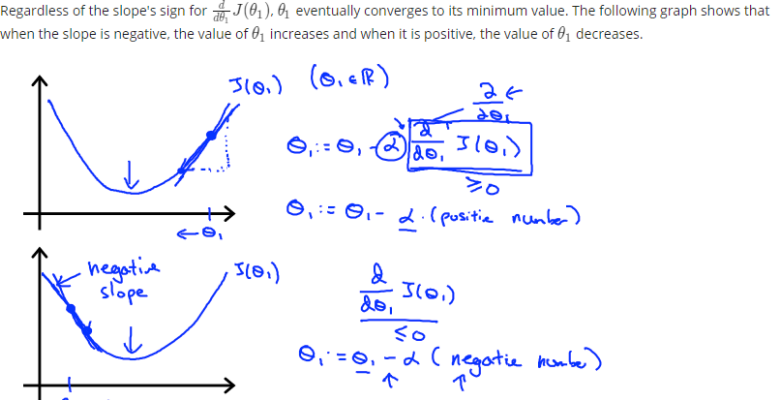 Regardless of the slope's sign for d/dθ₁ J(θ₁), θ₁ eventually converges to its minimum value. The following graph shows that
when the slope is negative, the value of θ₁ increases and when it is positive, the value of θ₁ decreases.
J(θ₁) (θ₁ ∈ ℝ)
∂/∂θ₁ ←
θ₁ := θ₁ - α d/dθ₁ J(θ₁)
≥ 0
θ₁ := θ₁ - α · (positive number)
← θ₁
negative
slope
J(θ₁)
d/dθ₁ J(θ₁)
≤ 0
θ₁ := θ₁ - α (negative number)